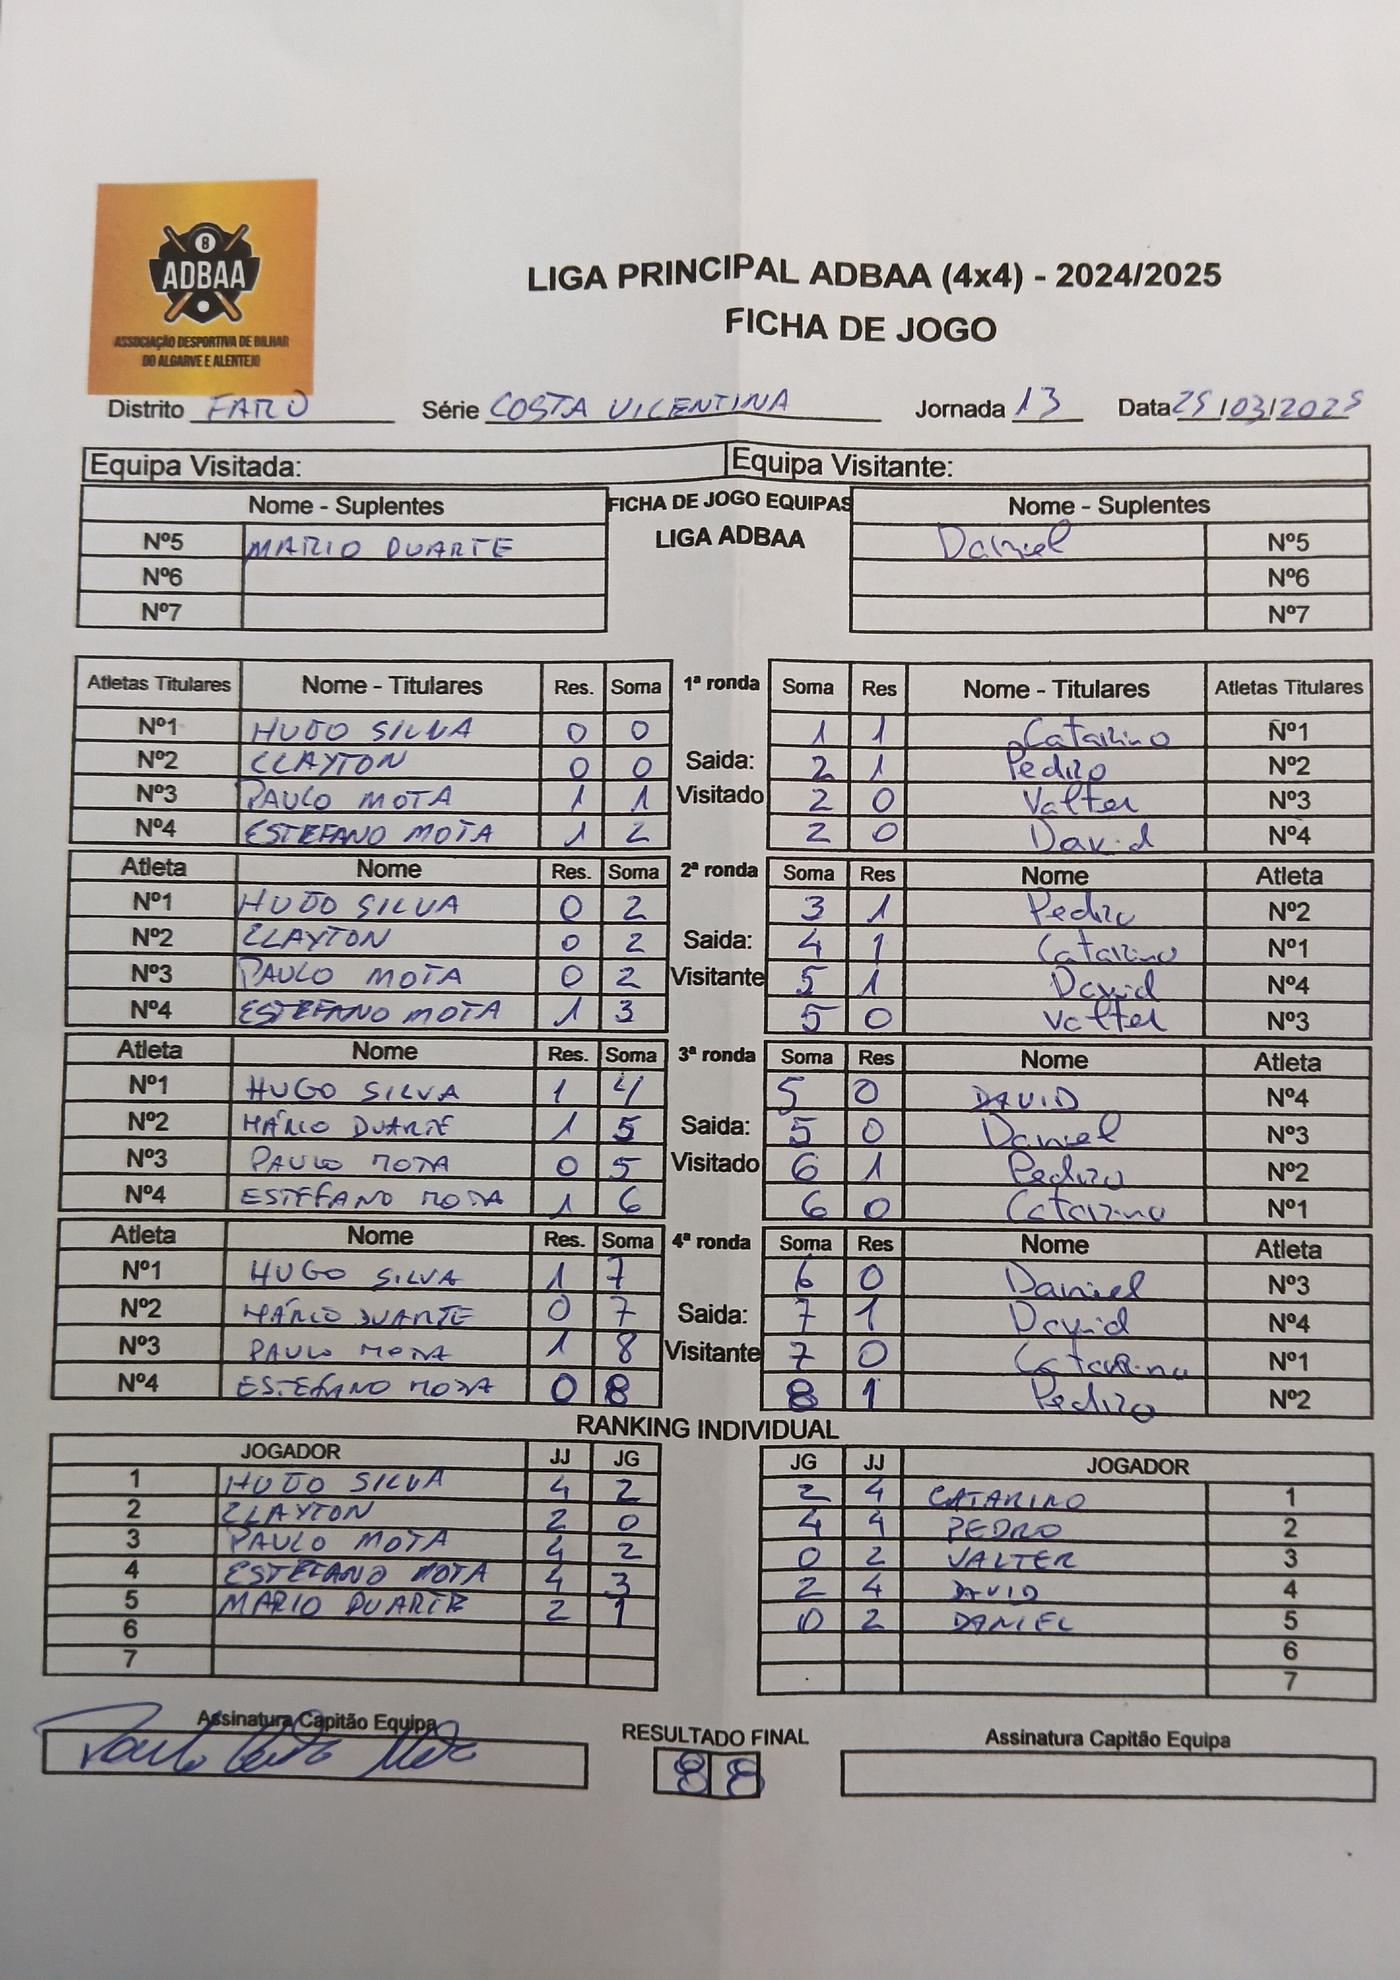 8
ADBAA
ASSOCIAÇÃO DESPORTIVA DE BILHAR
DO ALGARVE E ALENTEJO
LIGA PRINCIPAL ADBAA (4x4) - 2024/2025
FICHA DE JOGO
Distrito FARO Série COSTA VICENTINA Jornada 13 Data 25/03/2025
Equipa Visitada: Equipa Visitante:
Nome - Suplentes FICHA DE JOGO EQUIPAS Nome - Suplentes
LIGA ADBAA
Nº5 MARIO DUARTE Daniel Nº5
Nº6 Nº6
Nº7 Nº7
Atletas Titulares Nome - Titulares Res. Soma 1ª ronda Soma Res Nome - Titulares Atletas Titulares
Nº1 HUGO SILVA 0 0 1 1 Catarino Nº1
Nº2 CLAYTON 0 0 Saida: 2 1 Pedro Nº2
Nº3 PAULO MOTA 1 1 Visitado 2 0 Valter Nº3
Nº4 ESTEFANO MOTA 1 2 2 0 David Nº4
Atleta Nome Res. Soma 2ª ronda Soma Res Nome Atleta
Nº1 HUGO SILVA 0 2 3 1 Pedro Nº2
Nº2 CLAYTON 0 2 Saida: 4 1 Catarino Nº1
Nº3 PAULO MOTA 0 2 Visitante 5 1 David Nº4
Nº4 ESTEFANO MOTA 1 3 5 0 Valter Nº3
Atleta Nome Res. Soma 3ª ronda Soma Res Nome Atleta
Nº1 HUGO SILVA 1 4 5 0 DAVID Nº4
Nº2 MÁRIO DUARTE 1 5 Saida: 5 0 Daniel Nº3
Nº3 PAULO MOTA 0 5 Visitado 6 1 Pedro Nº2
Nº4 ESTEFANO MOTA 1 6 6 0 Catarino Nº1
Atleta Nome Res. Soma 4ª ronda Soma Res Nome Atleta
Nº1 HUGO SILVA 1 7 6 0 Daniel Nº3
Nº2 MÁRIO DUARTE 0 7 Saida: 7 1 David Nº4
Nº3 PAULO MOTA 1 8 Visitante 7 0 Catarino Nº1
Nº4 ESTEFANO MOTA 0 8 8 1 Pedro Nº2
RANKING INDIVIDUAL
JOGADOR JJ JG JG JJ JOGADOR
1 HUGO SILVA 4 2 2 4 CATARINO 1
2 CLAYTON 2 0 4 4 PEDRO 2
3 PAULO MOTA 4 2 0 2 VALTER 3
4 ESTEFANO MOTA 4 3 2 4 DAVID 4
5 MARIO DUARTE 2 1 0 2 DANIEL 5
6 6
7 7
Assinatura Capitão Equipa RESULTADO FINAL Assinatura Capitão Equipa
8 8